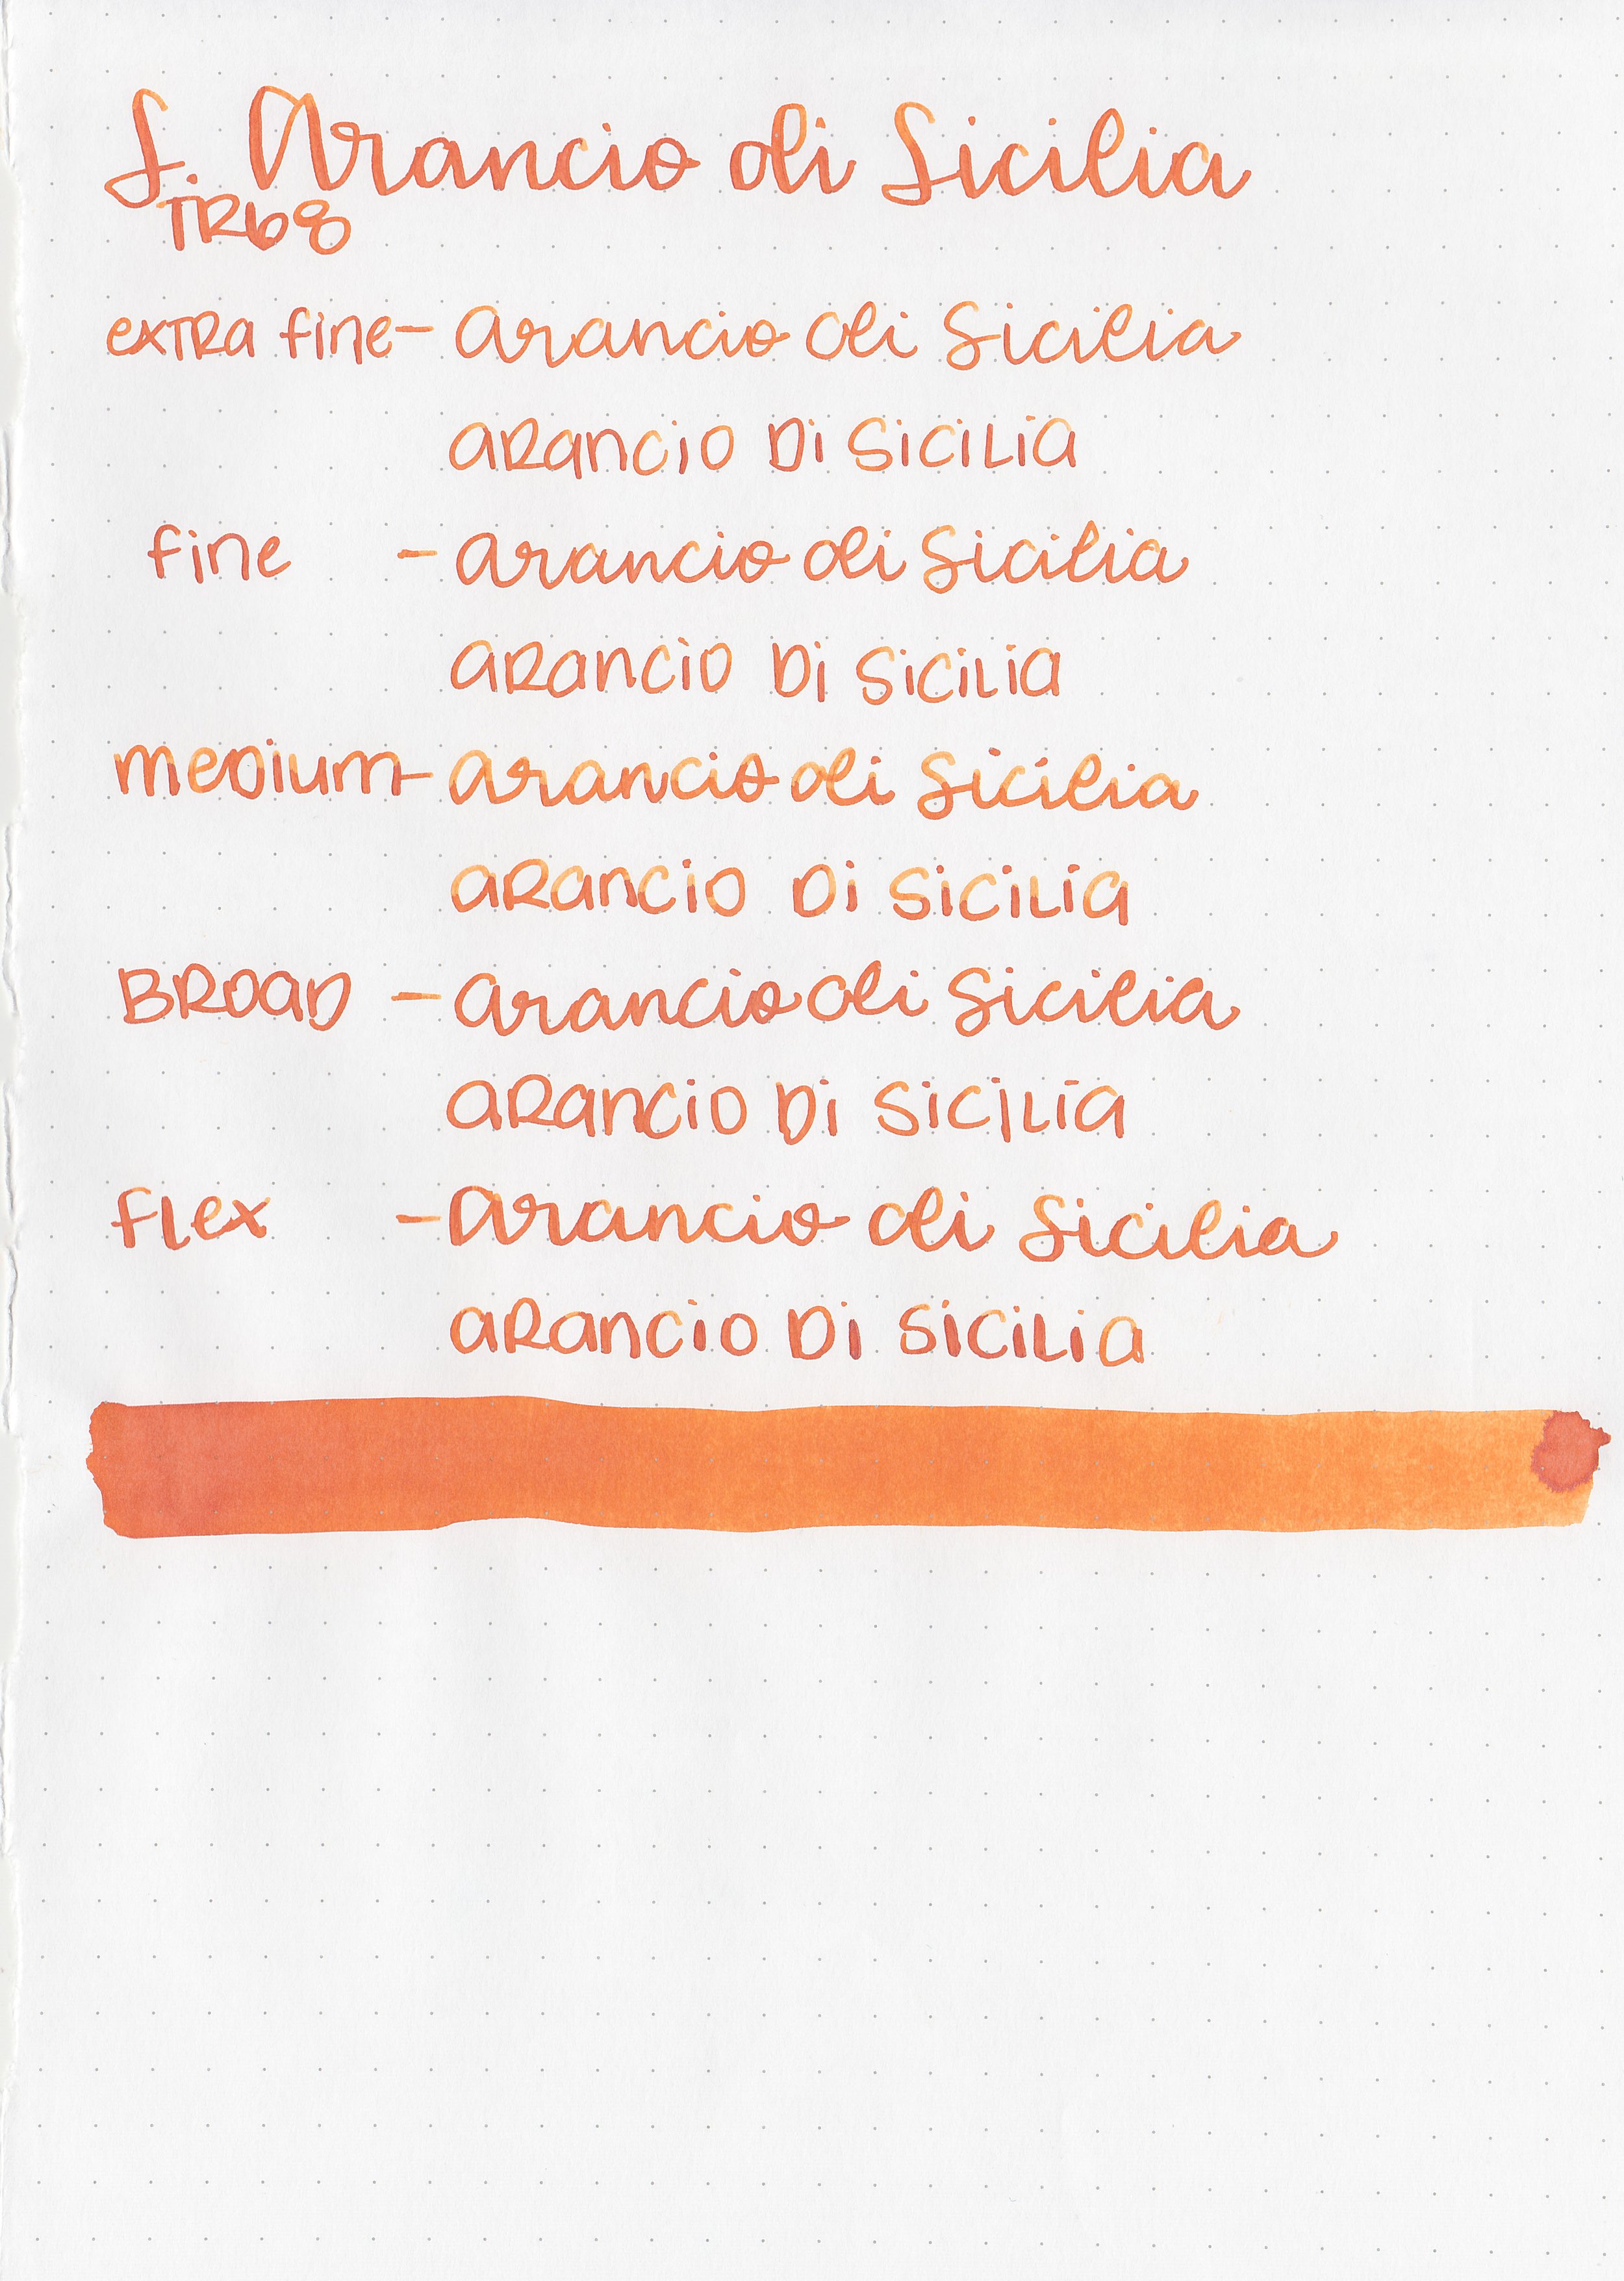 S. Arancio di Sicilia
TR68
extra fine - Arancio di Sicilia
Arancio Di Sicilia
fine - Arancio di Sicilia
Arancio Di Sicilia
medium - Arancio di Sicilia
Arancio Di Sicilia
BROAD - Arancio di Sicilia
Arancio Di Sicilia
flex - Arancio di Sicilia
Arancio Di Sicilia